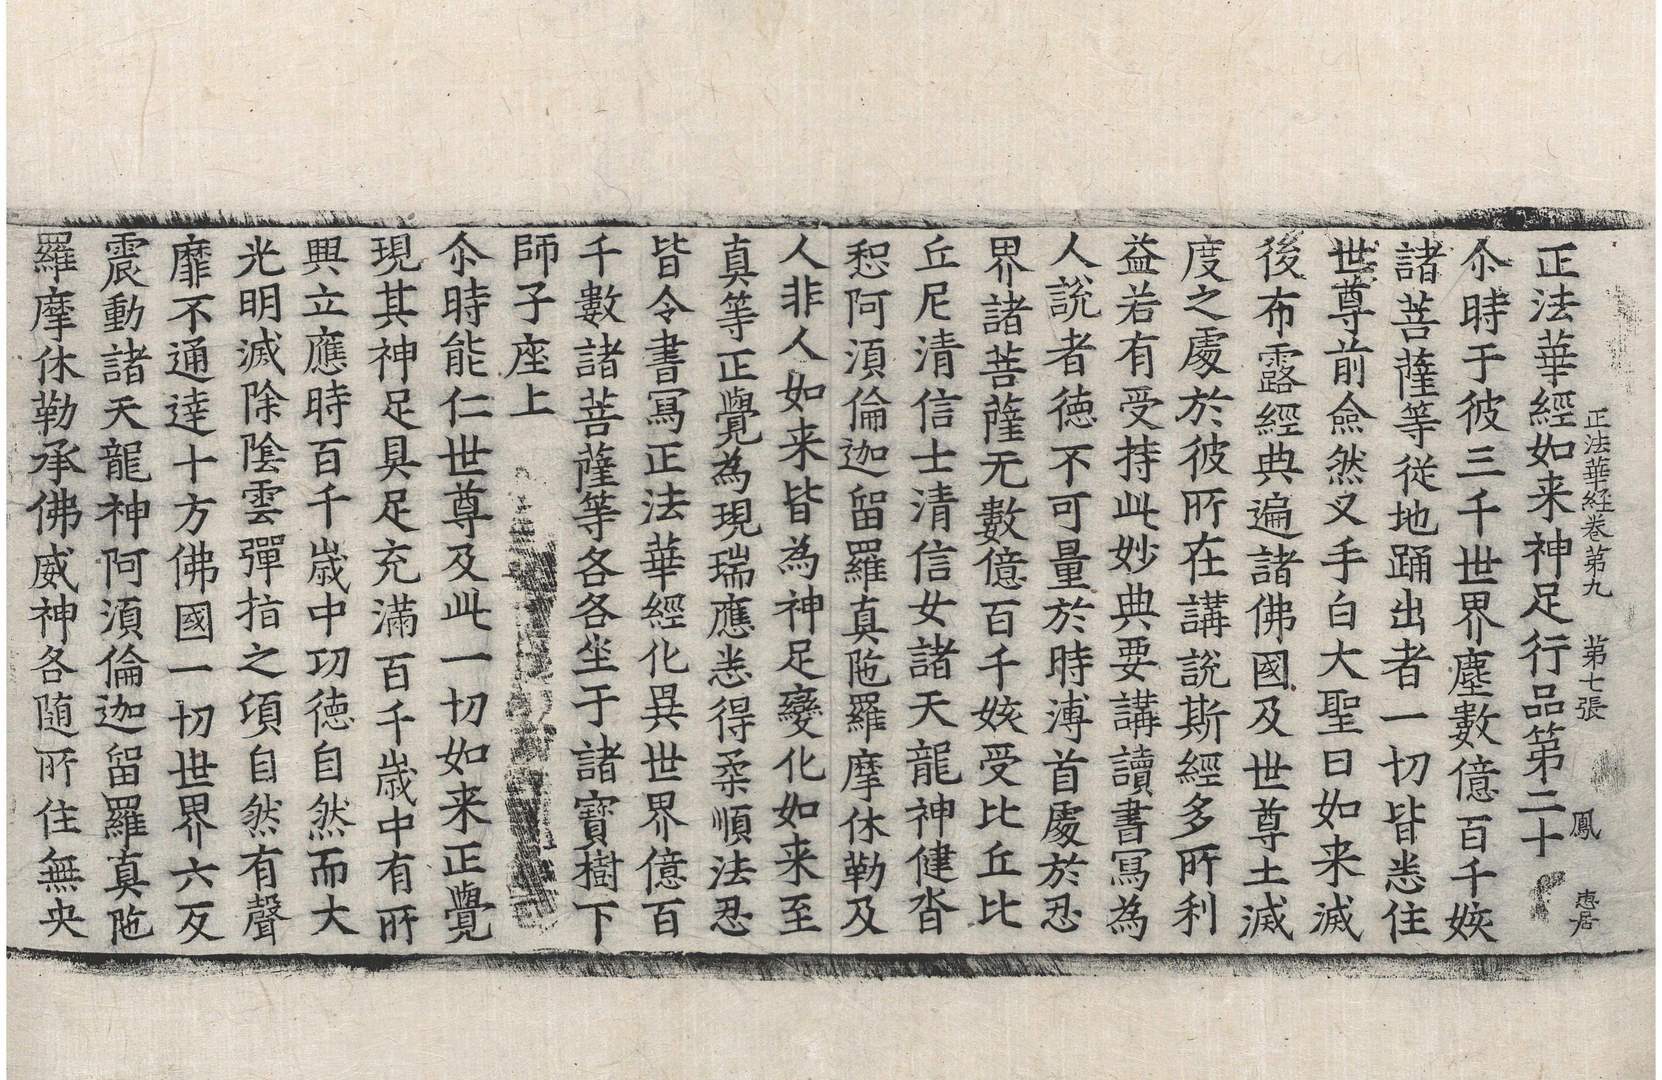 正法華經卷第九　第七張　鳳　惠居
正法華經如来神足行品第二十
尒時于彼三千世界塵數億百千姟
諸菩薩等從地踊出者一切皆悉住
世尊前僉然叉手白大聖曰如来滅
後布露經典遍諸佛國及世尊土滅
度之處於彼所在講說斯經多所利
益若有受持此妙典要講讀書寫為
人說者德不可量於時溥首處於忍
界諸菩薩无數億百千姟受比丘比
丘尼清信士清信女諸天龍神健沓
惒阿湏倫迦留羅真陁羅摩休勒及
人非人如来皆為神足變化如来至
真等正覺為現瑞應悉得柔順法忍
皆令書寫正法華經化異世界億百
千數諸菩薩等各各坐于諸寶樹下
師子座上
尒時能仁世尊及此一切如来正覺
現其神足具足充滿百千歲中有所
興立應時百千歲中功德自然而大
光明滅除陰雲彈指之頃自然有聲
靡不通達十方佛國一切世界六反
震動諸天龍神阿湏倫迦留羅真陁
羅摩休勒承佛威神各随所住無央